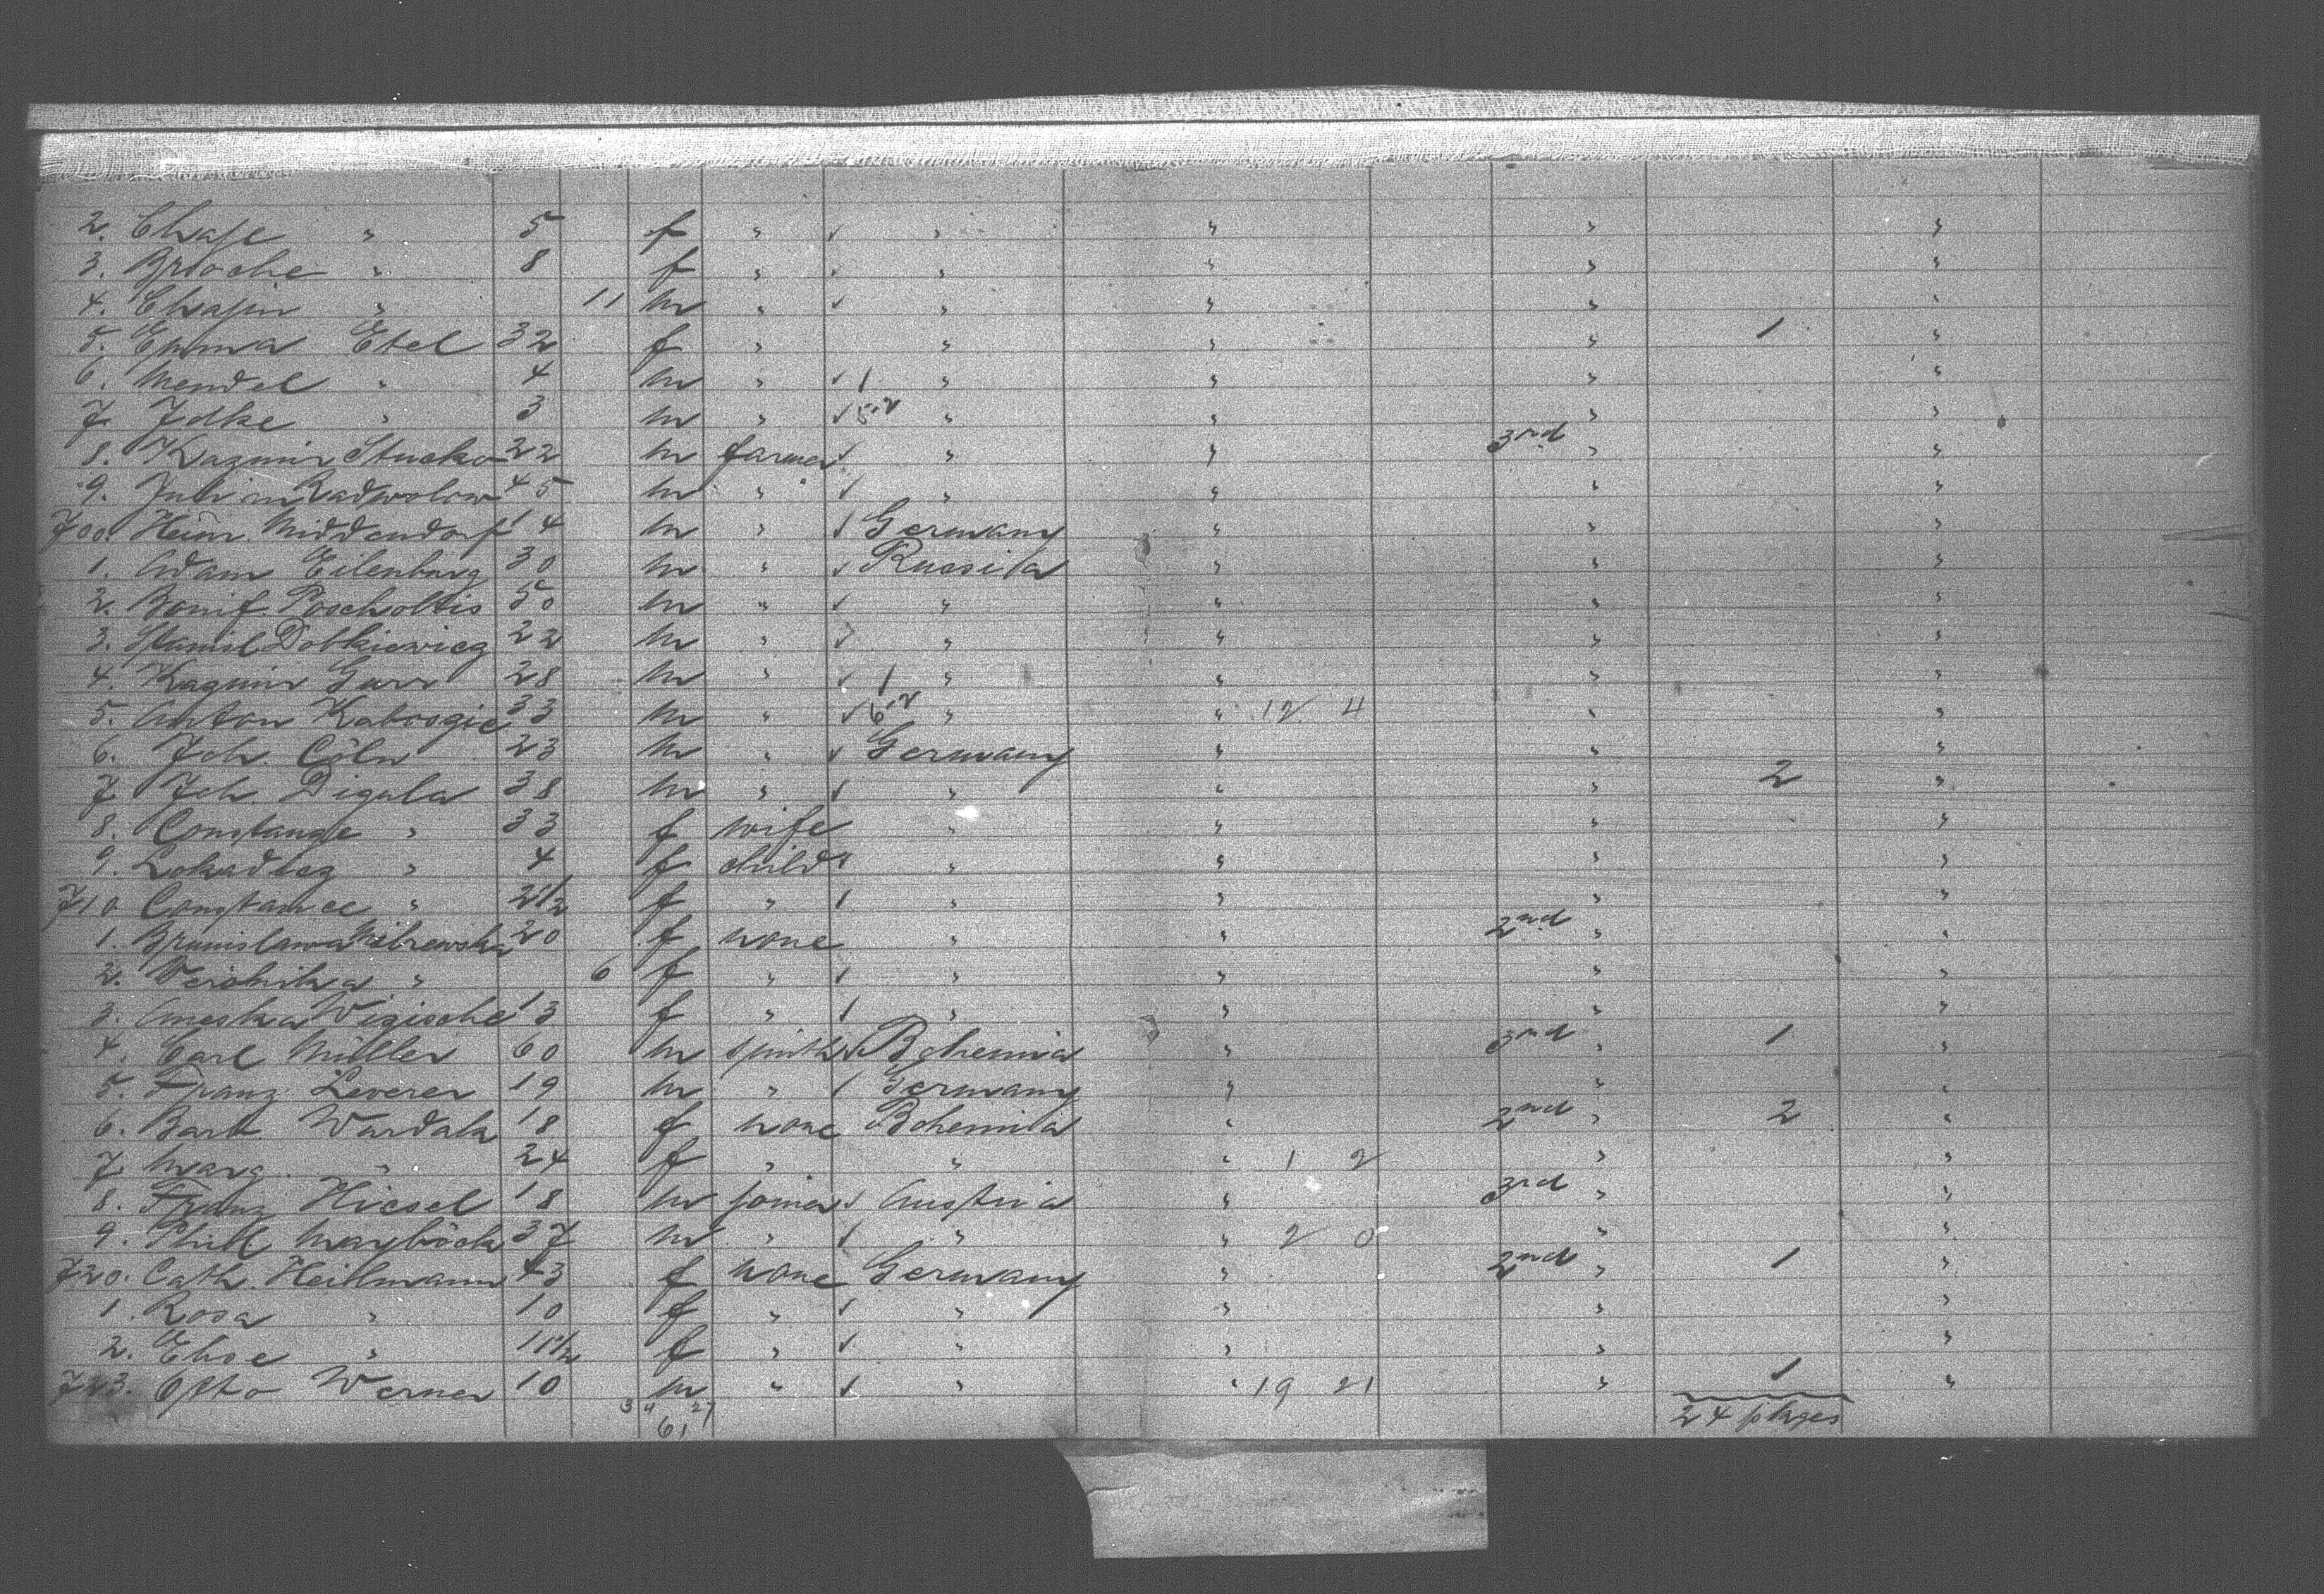 2. Chaje " 5 f " ✓ " " " "
3. Broche " 8 f " " " " "
4. Chajin " 11 m " ✓ " " " "
5. Emma Etel 32 f " " " " 1 "
6. Mendel " 4 m " ✓ 1 " " " "
7. Idke " 3 m " ✓ " " " "
8. Kazmir Stucko 22 m farmer ✓ " " 3rd " "
9. Julian 45 m " ✓ " " " "
700. Heinr. Middendorf 14 m " ✓ Germany " " "
1. Adam Eilenburg 30 m " ✓ Russia " " "
2. Bonif. Poscholtis 50 m " ✓ " " " "
3. Stanisl Dobkiewicz 22 m " ✓ " " " "
4. Kazmir 28 m " ✓ 1 " " " "
5. Anton 33 m " ✓ " " 12 4 " "
6. Joh. Cöln 23 m " ✓ Germany " " "
7. Joh. Digula 38 m " ✓ " " " 2 "
8. Constanze " 33 f wife " " " "
9. " 4 f child ✓ " " " "
710 Constance " 2 1/2 f " ✓ " " " "
1. Bronislawa 20 f none " " 2nd " "
2. Veronika " 6 f " ✓ " " " "
3. 13 f " ✓ " " " "
4. Carl Müller 60 m smith ✓ Bohemia " 3rd " 1 "
5. Franz Leverer 19 m " ✓ Germany " " "
6. Barb. Wardala 18 f none Bohemia " 2nd " 2 "
7. Marg. " 24 f " " " 1 2 " "
8. Franz Hiesel 18 m joiner ✓ Austria " 3rd " "
9. Mayböck 37 m " ✓ " " 2 0 " "
720. Cath. Heilmann 43 f none Germany " 2nd " 1 "
1. Rosa " 10 f " ✓ " " " "
2. Elise " 11 1/2 f " ✓ " " " "
723. Otto Werner 10 m " ✓ " " 19 21 " 1 "
34 27
61
24 pages